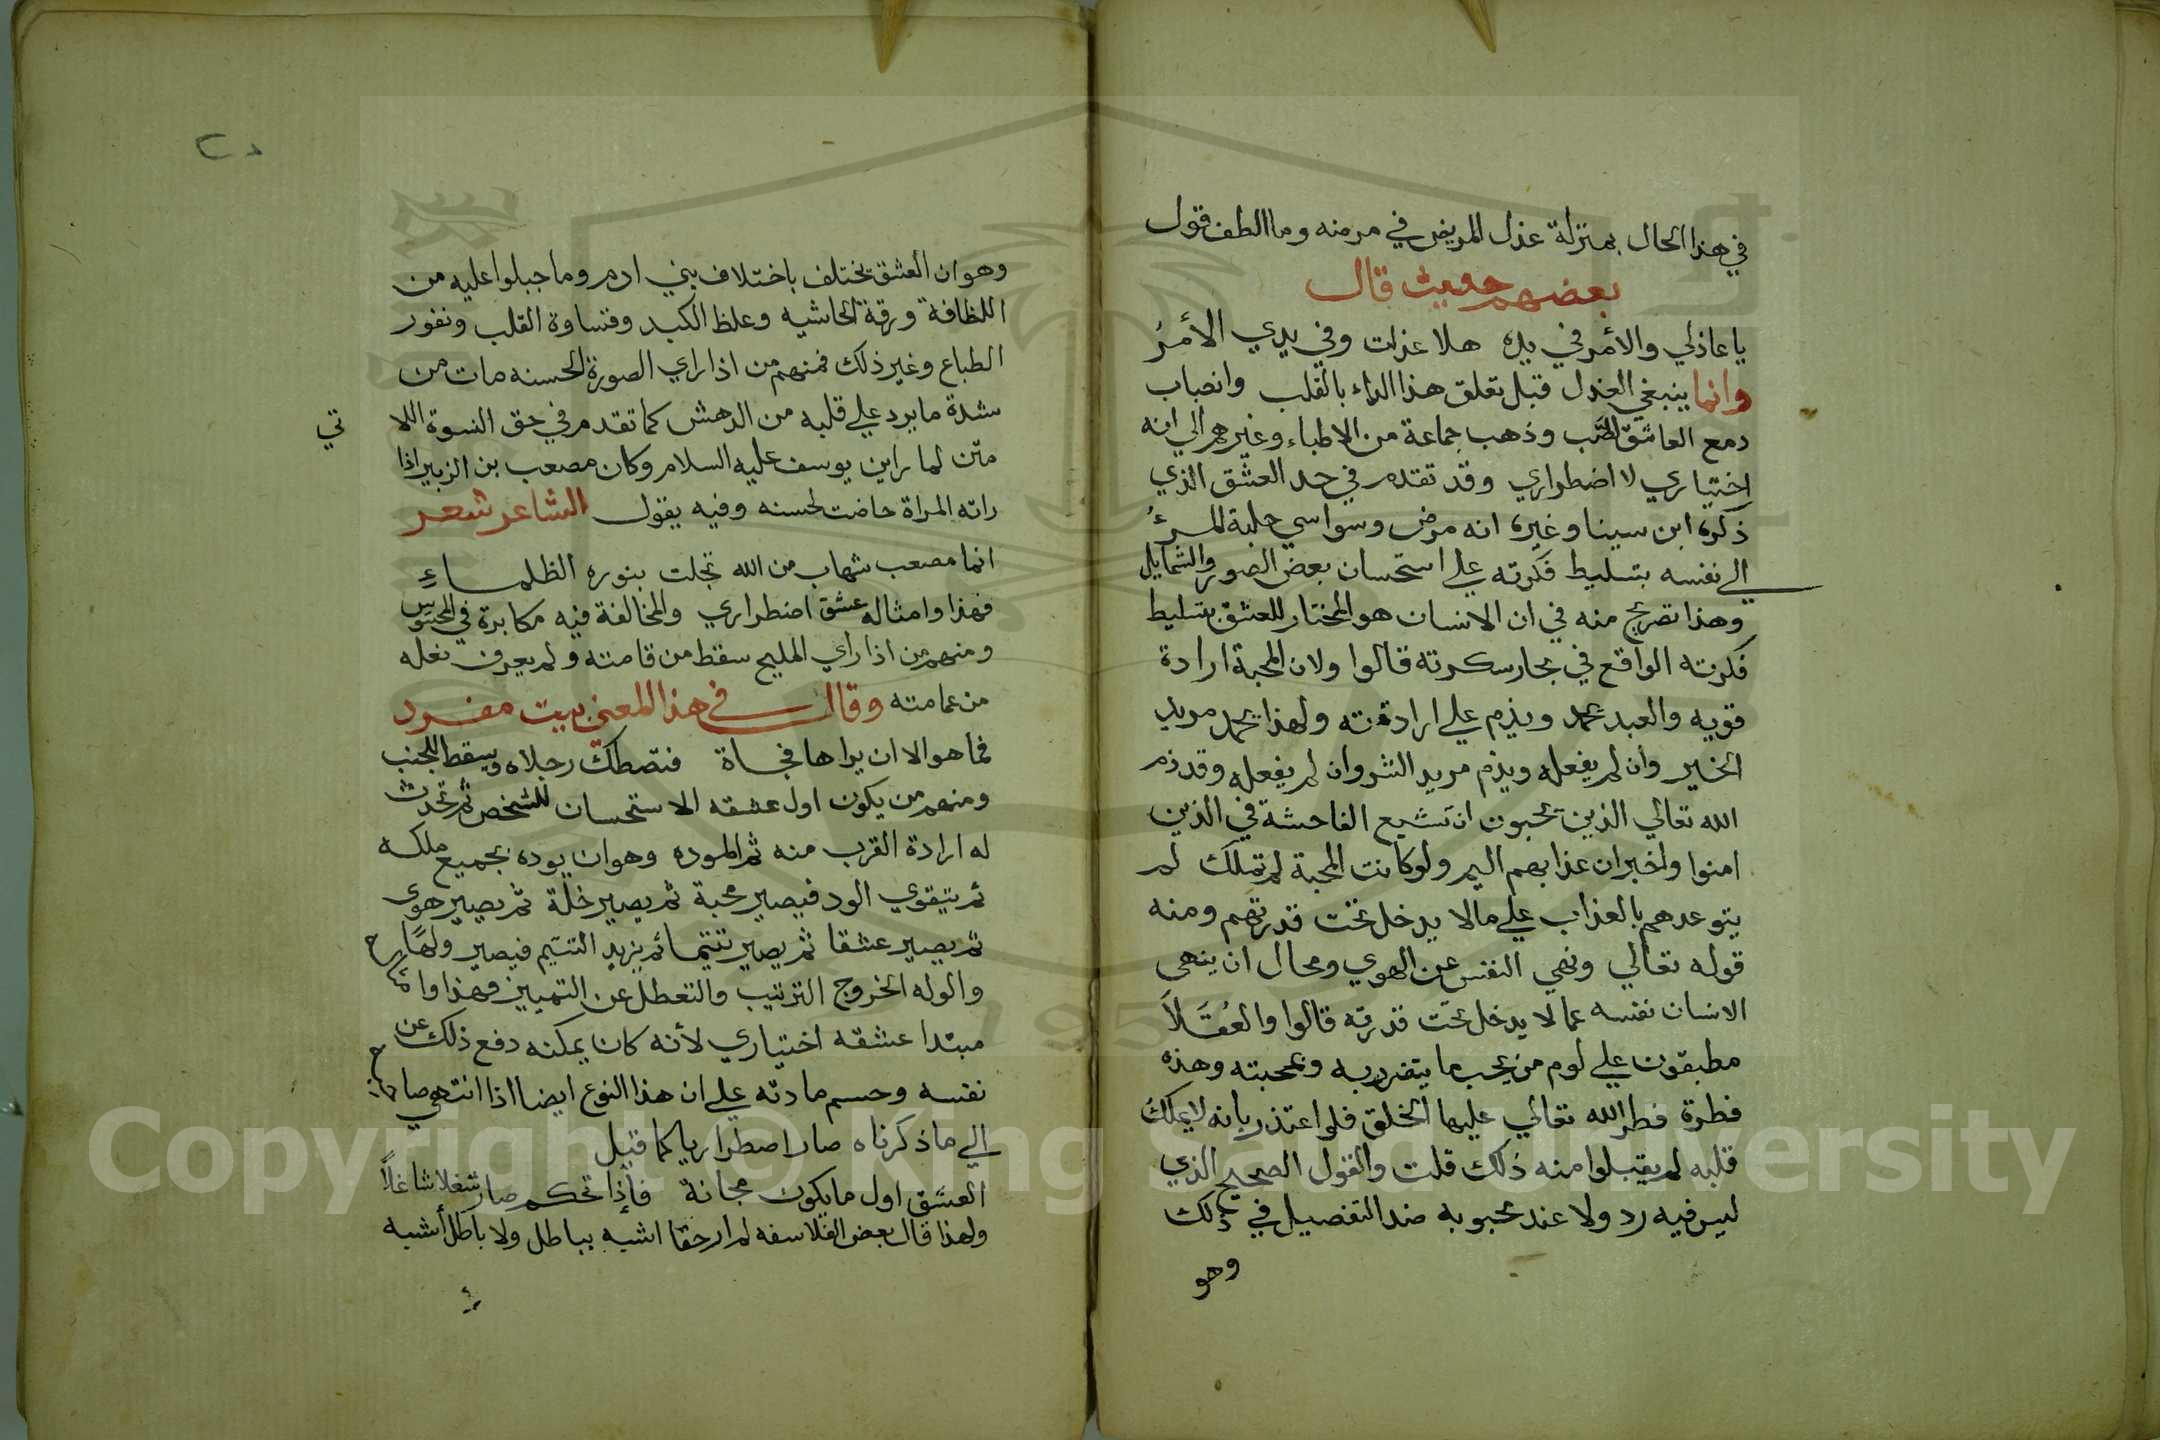 في هذا الحال بمنزلة عذل المريض في مرضه وما الطف قول
بعضهم حيث قال
يا عاذلي والأمر في يده هلا عذلت وفي يدي الأمرُ
وانما ينبغي العذل قبل تعلق هذا الداء بالقلب وانصباب
دمع العاشق الصب وذهب جماعة من الاطباء وغيرهم الي انه
اختياري لا اضطراري وقد تقدم في حد العشق الذي
ذكره ابن سينا وغيره انه مرض وسواسي جلبه المرءُ
الي نفسه بتسليط فكرته علي استحسان بعض الصور والشمايل
وهذا تصريح منه في ان الانسان هو المختار للعشق بتسليط
فكرته الواقع في بحار سكرته قالوا ولان المحبة ارادة
قويه والعبد يحمد ويذم علي ارادته ولهذا يحمد مريد
الخير وان لم يفعله ويذم مريد الشر وان لم يفعله وقد ذم
الله تعالي الذين يحبون ان تشيع الفاحشة في الذين
امنوا واخبر ان عذابهم اليم ولو كانت المحبة لم تملك لم
يتوعدهم بالعذاب علي مالا يدخل تحت قدرتهم ومنه
قوله تعالي ونهي النفس عن الهوي ومحال ان ينهي
الانسان نفسه عما لا يدخل تحت قدرته قالوا والعُقَلاَ
مطبقون علي لوم من يحب ما يتضرر به وبمحبته وهذه
فطرة فطر الله تعالي عليها الخلق فلو اعتذر بانه لا يملك
قلبه لم يقبلوا منه ذلك قلت والقول الصحيح الذي
ليس فيه رد ولا عند محبوبه ضد التفصيل في ذلك
وهو
وهو ان العشق يختلف باختلاف بني ادم وما جبلوا عليه من
اللظافة ورقة الحاشيه وغلظ الكبد وقساوة القلب ونفور
الطباع وغير ذلك فمنهم من اذا راي الصورة الحسنه مات من
شدة ما يرد علي قلبه من الدهش كما تقدم في حق النسوة اللا
تي
متن لما راين يوسف عليه السلام وكان مصعب بن الزبير اذا
راته المراة حاضت لحسنه وفيه يقول الشاعر شعر
انما مصعب شهاب من الله تجلت بنوره الظلماءِ
فهذا وامثاله عشق اضطراري والمخالفة فيه مكابرة في المحسوس
ومنهم من اذا راي المليح سقط من قامته ولم يعرف نعله
من عمامته وقال في هذا المعني بيت مفرد
فما هو الا ان يراها فجاة فتصطك رجلاه ويسقط للجنب
ومنهم من يكون اول عشقه الاستحسان للشخص ثم تحدث
له ارادة القرب منه ثم الموده وهو ان يوده بجميع ملكه
ثم يتقوي الود فيصير محبة ثم يصير خلة ثم يصير هوي
ثم يصير عشقا ثم يصير تتيما ثم يزيد التتيم فيصير ولهًا
والوله الخروج الترتيب والتعطل عن التمييز وهذا وا
مبتدا عشقه اختياري لأنه كان يمكنه دفع ذلك عن
نفسه وحسم مادته علي ان هذا النوع ايضا اذا انتهي صا
الي ما ذكرناه صار اضطراريا كما قيل
العشق اول ما يكون مجانة فإذا تحكم صار شغلا شاغلاً
ولهذا قال بعض الفلاسفه لم ار حقا اشبه بباطل ولا باطل أشبه
Copyright © King Saud University
1957